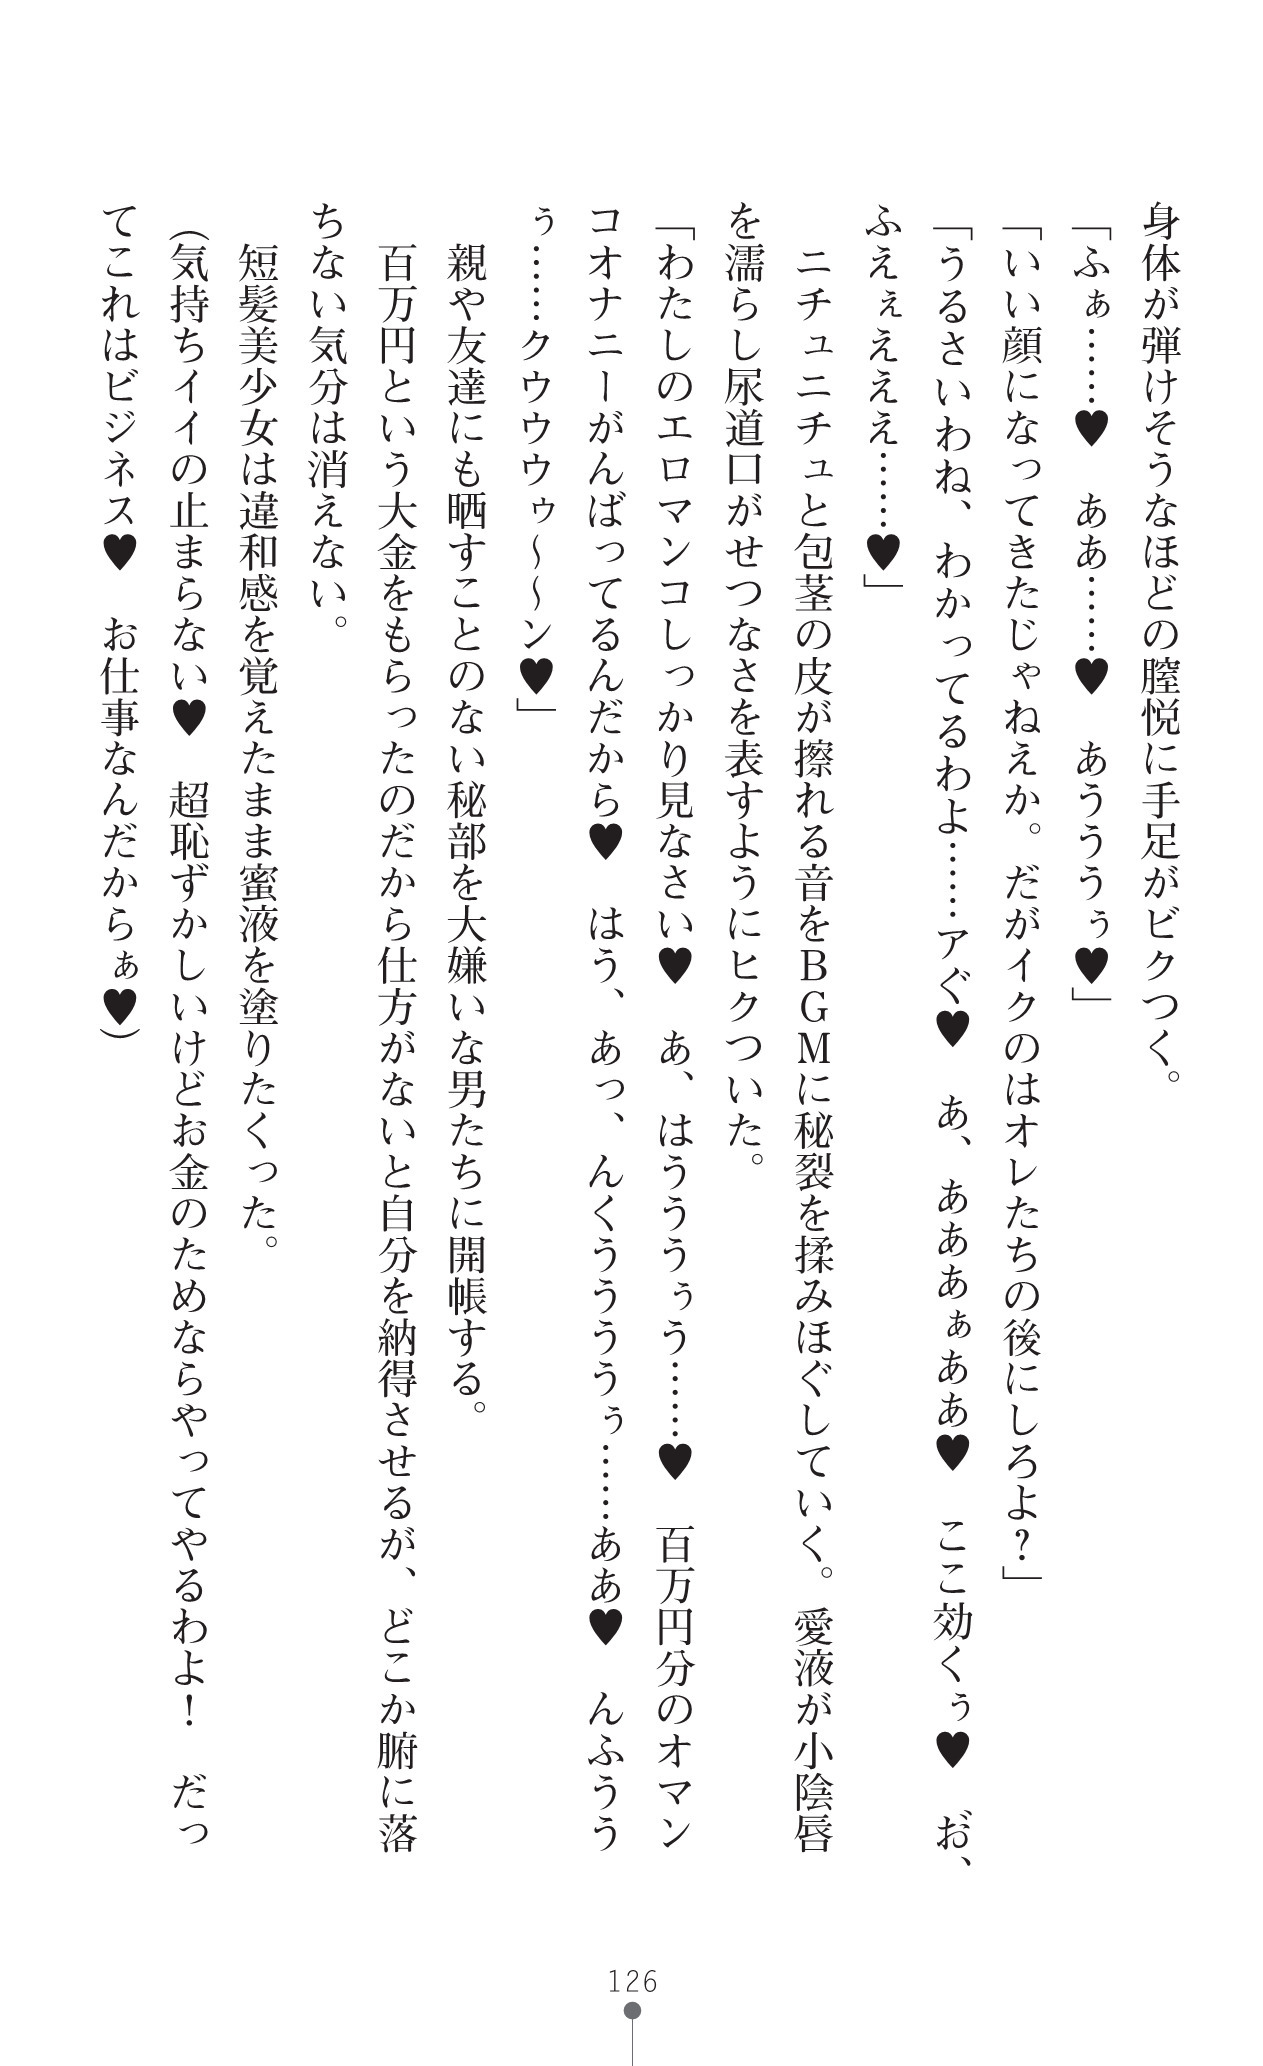 身体が弾けそうなほどの膣悦に手足がビクつく。
「ふぁ……♥　ああ……♥　あうううぅ♥」
「いい顔になってきたじゃねえか。だがイクのはオレたちの後にしろよ？」
「うるさいわね、わかってるわよ……アぐ♥　あ、あああぁああ♥　ここ効くぅ♥　お゛、
ふえぇえええ……♥」
　ニチュニチュと包茎の皮が擦れる音をＢＧＭに秘裂を揉みほぐしていく。愛液が小陰唇
を濡らし尿道口がせつなさを表すようにヒクついた。
「わたしのエロマンコしっかり見なさい♥　あ、はうううぅう……♥　百万円分のオマン
コオナニーがんばってるんだから♥　はう、あっ、んくううううぅ……ああ♥　んふうう
ぅ……クウウウゥ～～ン♥」
　親や友達にも晒すことのない秘部を大嫌いな男たちに開帳する。
　百万円という大金をもらったのだから仕方がないと自分を納得させるが、どこか腑に落
ちない気分は消えない。
　短髪美少女は違和感を覚えたまま蜜液を塗りたくった。
（気持ちイイの止まらない♥　超恥ずかしいけどお金のためならやってやるわよ！　だっ
てこれはビジネス♥　お仕事なんだからぁ♥）
126